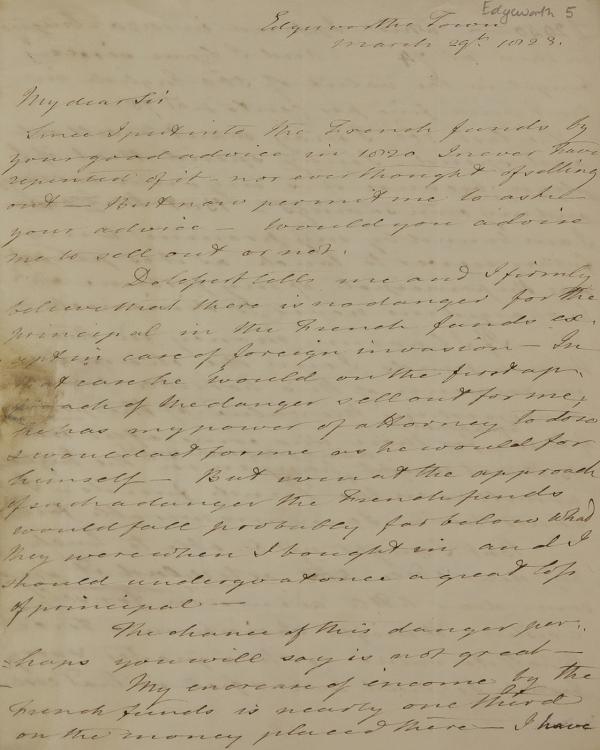 Edgeworth 5
Edgeworths Town
March 29th 1823.
My dear Sir
Since I put into the French funds by
your good advice in 1820 I never have
repented of it nor ever thought of selling
out — But now permit me to ask
your advice — Would you advise
me to sell out or not.
Delessert tells me and I firmly
believe that there is no danger for the
principal in the French funds ex-
cept in case of foreign invasion — In
that case he would on the first ap-
proach of the danger sell out for me;
he has my power of attorney to do so
& would act for me as he would for
himself — But even at the approach
of such a danger the French funds
would fall probably far below what
they were when I bought in and I
should undergo at once a great loss
of principal —
The chance of this danger per-
haps you will say is not great —
My encrease of income by the
French funds is nearly one third
on the money placed there — I have